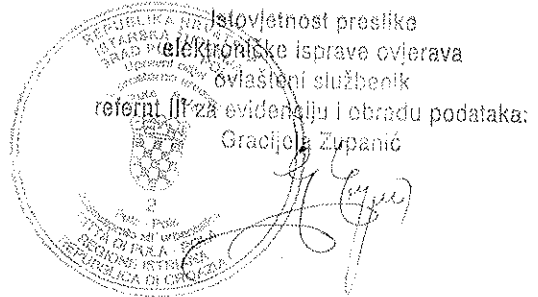 Istovjetnost preslike
elektroničke isprave ovjerava
ovlašteni službenik
refernt III za evidenciju i obradu podataka:
Gracijela Zupanić
REPUBLIKA
ISTARSKA
GRAD
Upravni odjel
Pula
2
Pula - Pola
CITTÀ DI PULA - POLA
REGIONE ISTRIANA
REPUBLICA DI CROAZIA